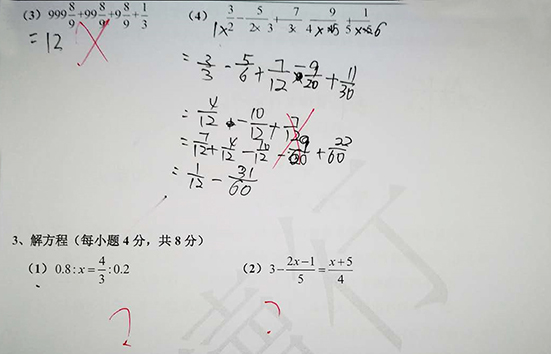 (3) 999 8/9 + 99 8/9 + 9 8/9 + 1/3
= 12
(4) 3/1×2 - 5/2×3 + 7/3× - 9/4×5 + 11/5×6
= 3/3 - 5/6 + 7/12 - 9/20 + 11/30
= 4/12 - 10/12 + 7/12
= 7/12 + 4/12 - 10/12 - 9/20 + 22/60
= 1/12 - 31/60
3、解方程（每小题 4 分，共 8 分）
(1) 0.8 : x = 4/3 : 0.2
(2) 3 - 2x-1/5 = x+5/4
? ?